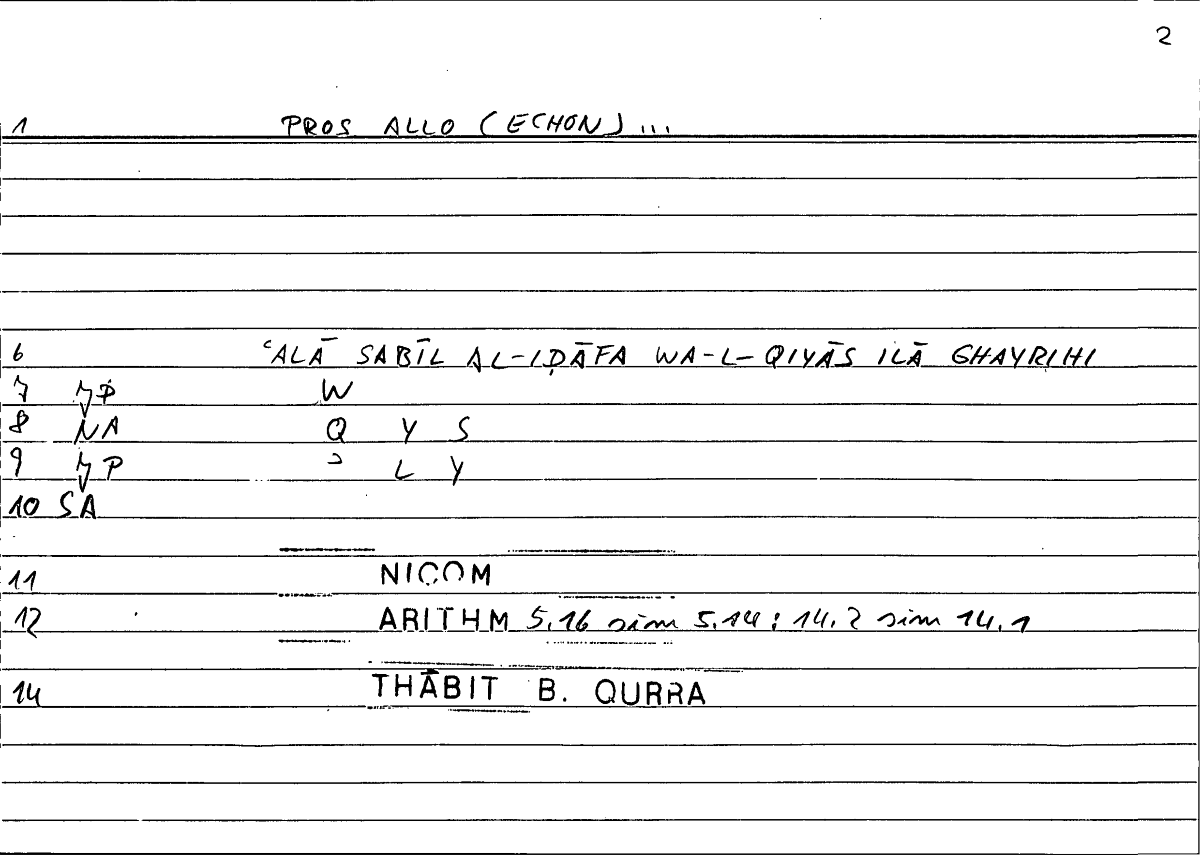 2
1 PROS ALLO (ECHON)...
6 ʿALĀ SABĪL AL-IḌĀFA WA-L-QIYĀS ILĀ GHAYRIHI
7 W
8 NA Q Y S
9 P ʾ L Y
10 SA
11 NICOM
12 ARITHM 5.16 sim 5.14; 14.2 sim 14.1
14 THĀBIT B. QURRA